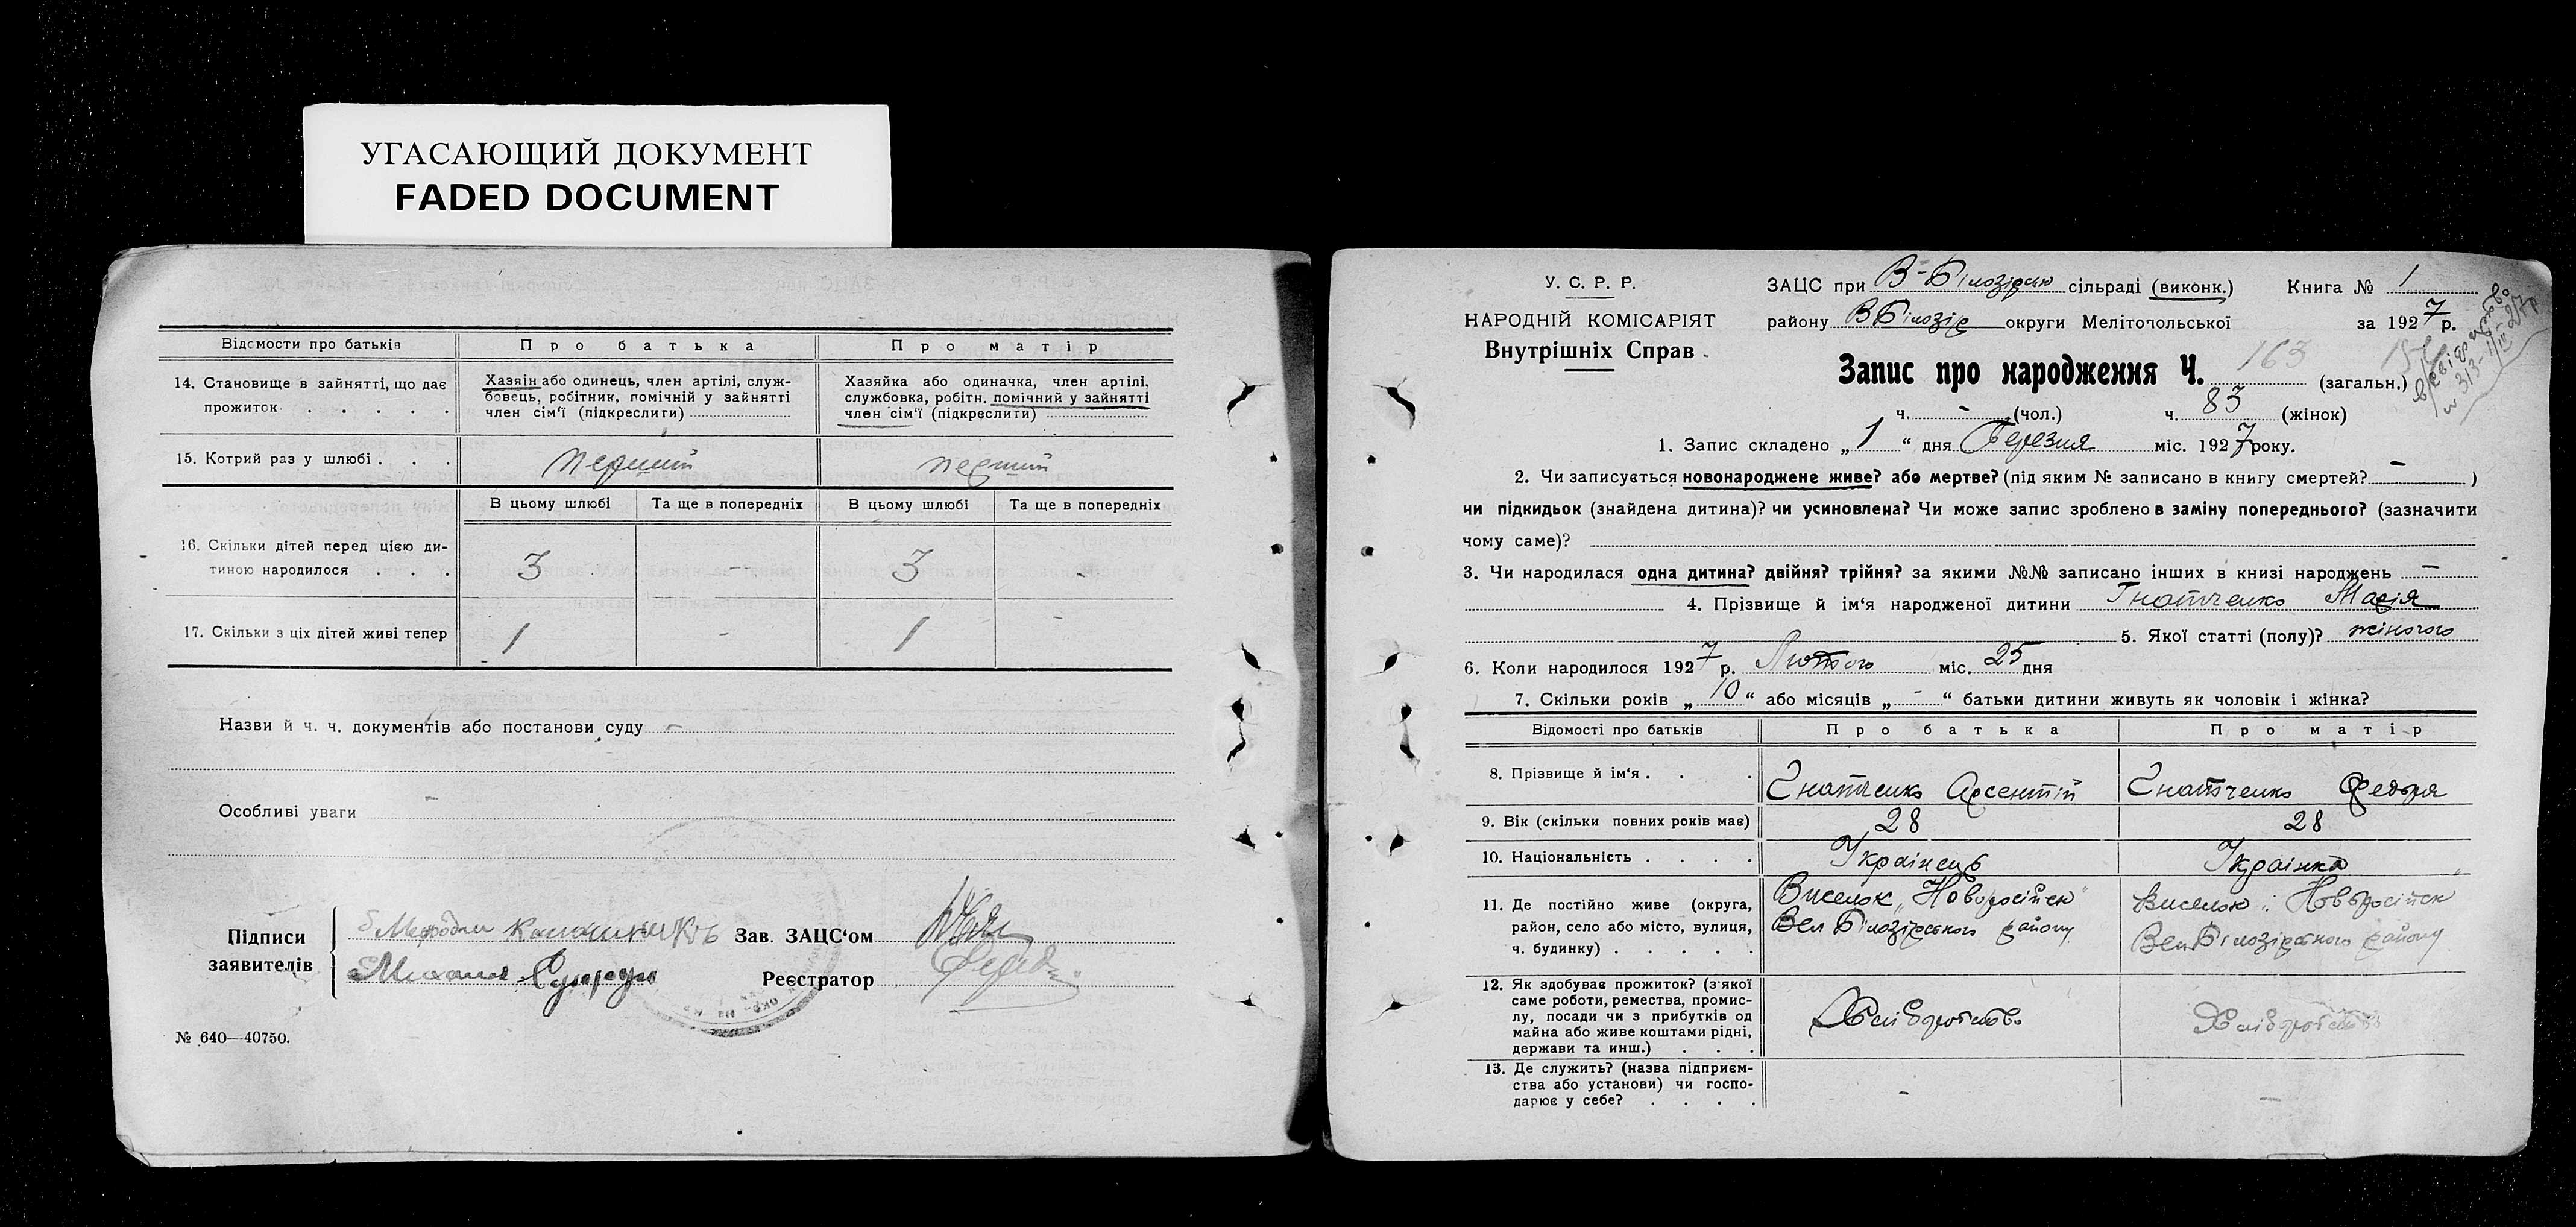 УГАСАЮЩИЙ ДОКУМЕНТ
FADED DOCUMENT
Відомости про батьків Про батька Про матір
14. Становище в зайнятті, що дає прожиток . . . . .
Хазяін або одинець, член артілі, служ-
бовець, робітник, помічній у зайнятті
член сім'ї (підкреслити)
Хазяйка або одиначка, член артілі,
службовка, робітн. помічний у зайнятті
член сім'ї (підкреслити)
15. Котрий раз у шлюбі . . . перший перший
В цьому шлюбі Та ще в попередніх В цьому шлюбі Та ще в попередніх
16. Скільки дітей перед цією ди-
тиною народилося . . . 3 - 3 -
17. Скільки з ціх дітей живі тепер 1 - 1 -
Назви й ч. ч. документів або постанови суду -
Особливі уваги -
Підписи
заявителів
Зав. ЗАЦС'ом
Реєстратор
№ 640—40750.
У. С. Р. Р.
НАРОДНІЙ КОМІСАРІЯТ
Внутрішніх Справ
ЗАЦС при В-Білозірск сільраді (виконк.) Книга № 1
району В Білозір округи Мелітопольської за 1927 р.
Запис про народження Ч. 163 (загальн.)
ч. - (чол.) ч. 83 (жінок)
1. Запис складено „ 1 “ дня Березня міс. 1927 року.
2. Чи записується новонароджене живе? або мертве? (під яким № записано в книгу смертей? - )
чи підкидьок (знайдена дитина)? чи усиновлена? Чи може запис зроблено в заміну попереднього? (зазначити
чому саме)?
3. Чи народилася одна дитина? двійня? трійня? за якими №№ записано інших в книзі народжень -
4. Прізвище й ім'я народженої дитини Гнатченко Марія
5. Якої статті (полу)? жіночого
6. Коли народилося 1927 р. Лютого міс. 25 дня
7. Скільки років „ 10 “ або місяців „ - “ батьки дитини живуть як чоловік і жінка?
Відомості про батьків Про батька Про матір
8. Прізвище й ім'я . . . Гнатченко Арсентій Гнатченко Федора
9. Вік (скільки повних років має) 28 28
10. Національність . . . . Українець Українка
11. Де постійно живе (округа,
район, село або місто, вулиця,
ч. будинку) . . . . .
Виселок „Новоросійск“
Вел Білозірського району
Виселок Новоросійск
Вел Білозірського району
12. Як здобуває прожиток? (з'якої
саме роботи, ремества, промис-
лу, посади чи з прибутків од
майна або живе коштами рідні,
держави та инш.) . . .
Хліборобство
Хліборобство
13. Де служить? (назва підприєм-
ства або установи) чи госпо-
дарює у себе? . . . .
- -